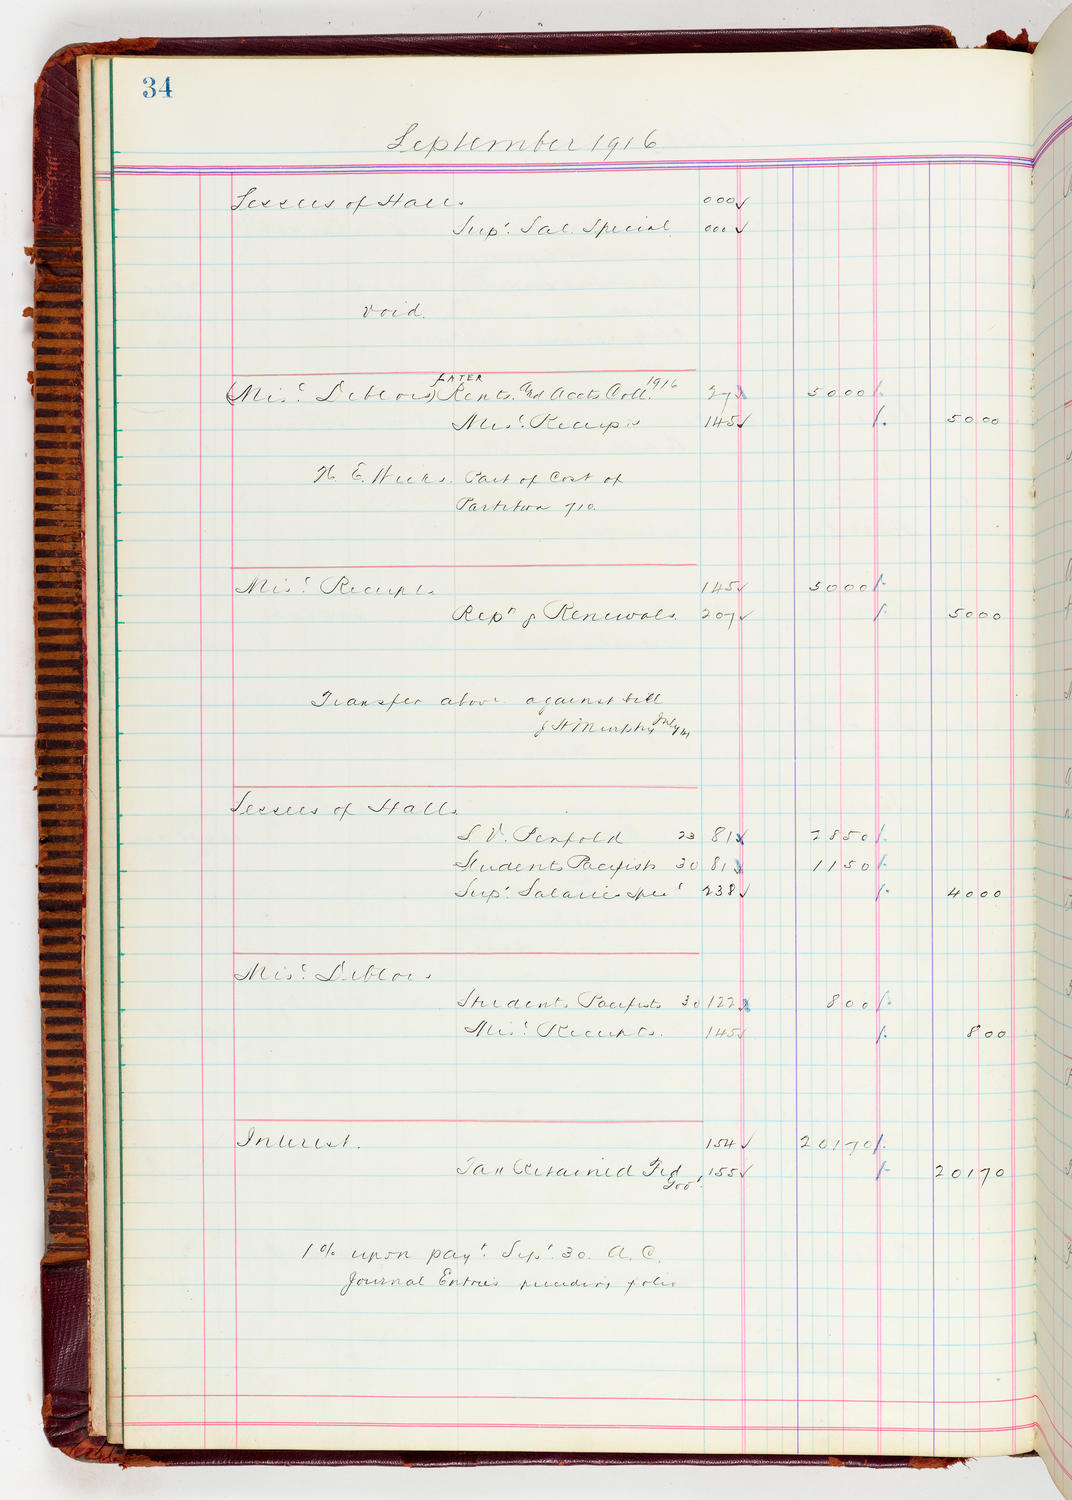 34
September 1916
Lessees of Halls 000 ✓
Supt. Sal. Special 000 ✓
void.
LATER
(Misc. Debtors) Rents and Accts Coll. 1916 27 5000
Misc. Receipts 145 ✓ 5000
H. E. Weeks. Part of Cost of
Partition 710.
Misc. Receipts 145 ✓ 5000
Reprs & Renewals. 207 ✓ 5000
Transfer above against bill
J H Murphy July
Lessees of Halls
S. V. Penfold 23 81 2850
Students Pacifists 30 81 1150
Supt. Salaries Specl 238 ✓ 4000
Misc. Debtors
Students Pacifists 30 122 800
Misc. Receipts. 145 ✓ 800
Interest. 154 ✓ 20170
Tax Retained Fed Govt. 155 ✓ 20170
1% upon payt. Sept. 30. A.C.
Journal Entries preceding folio